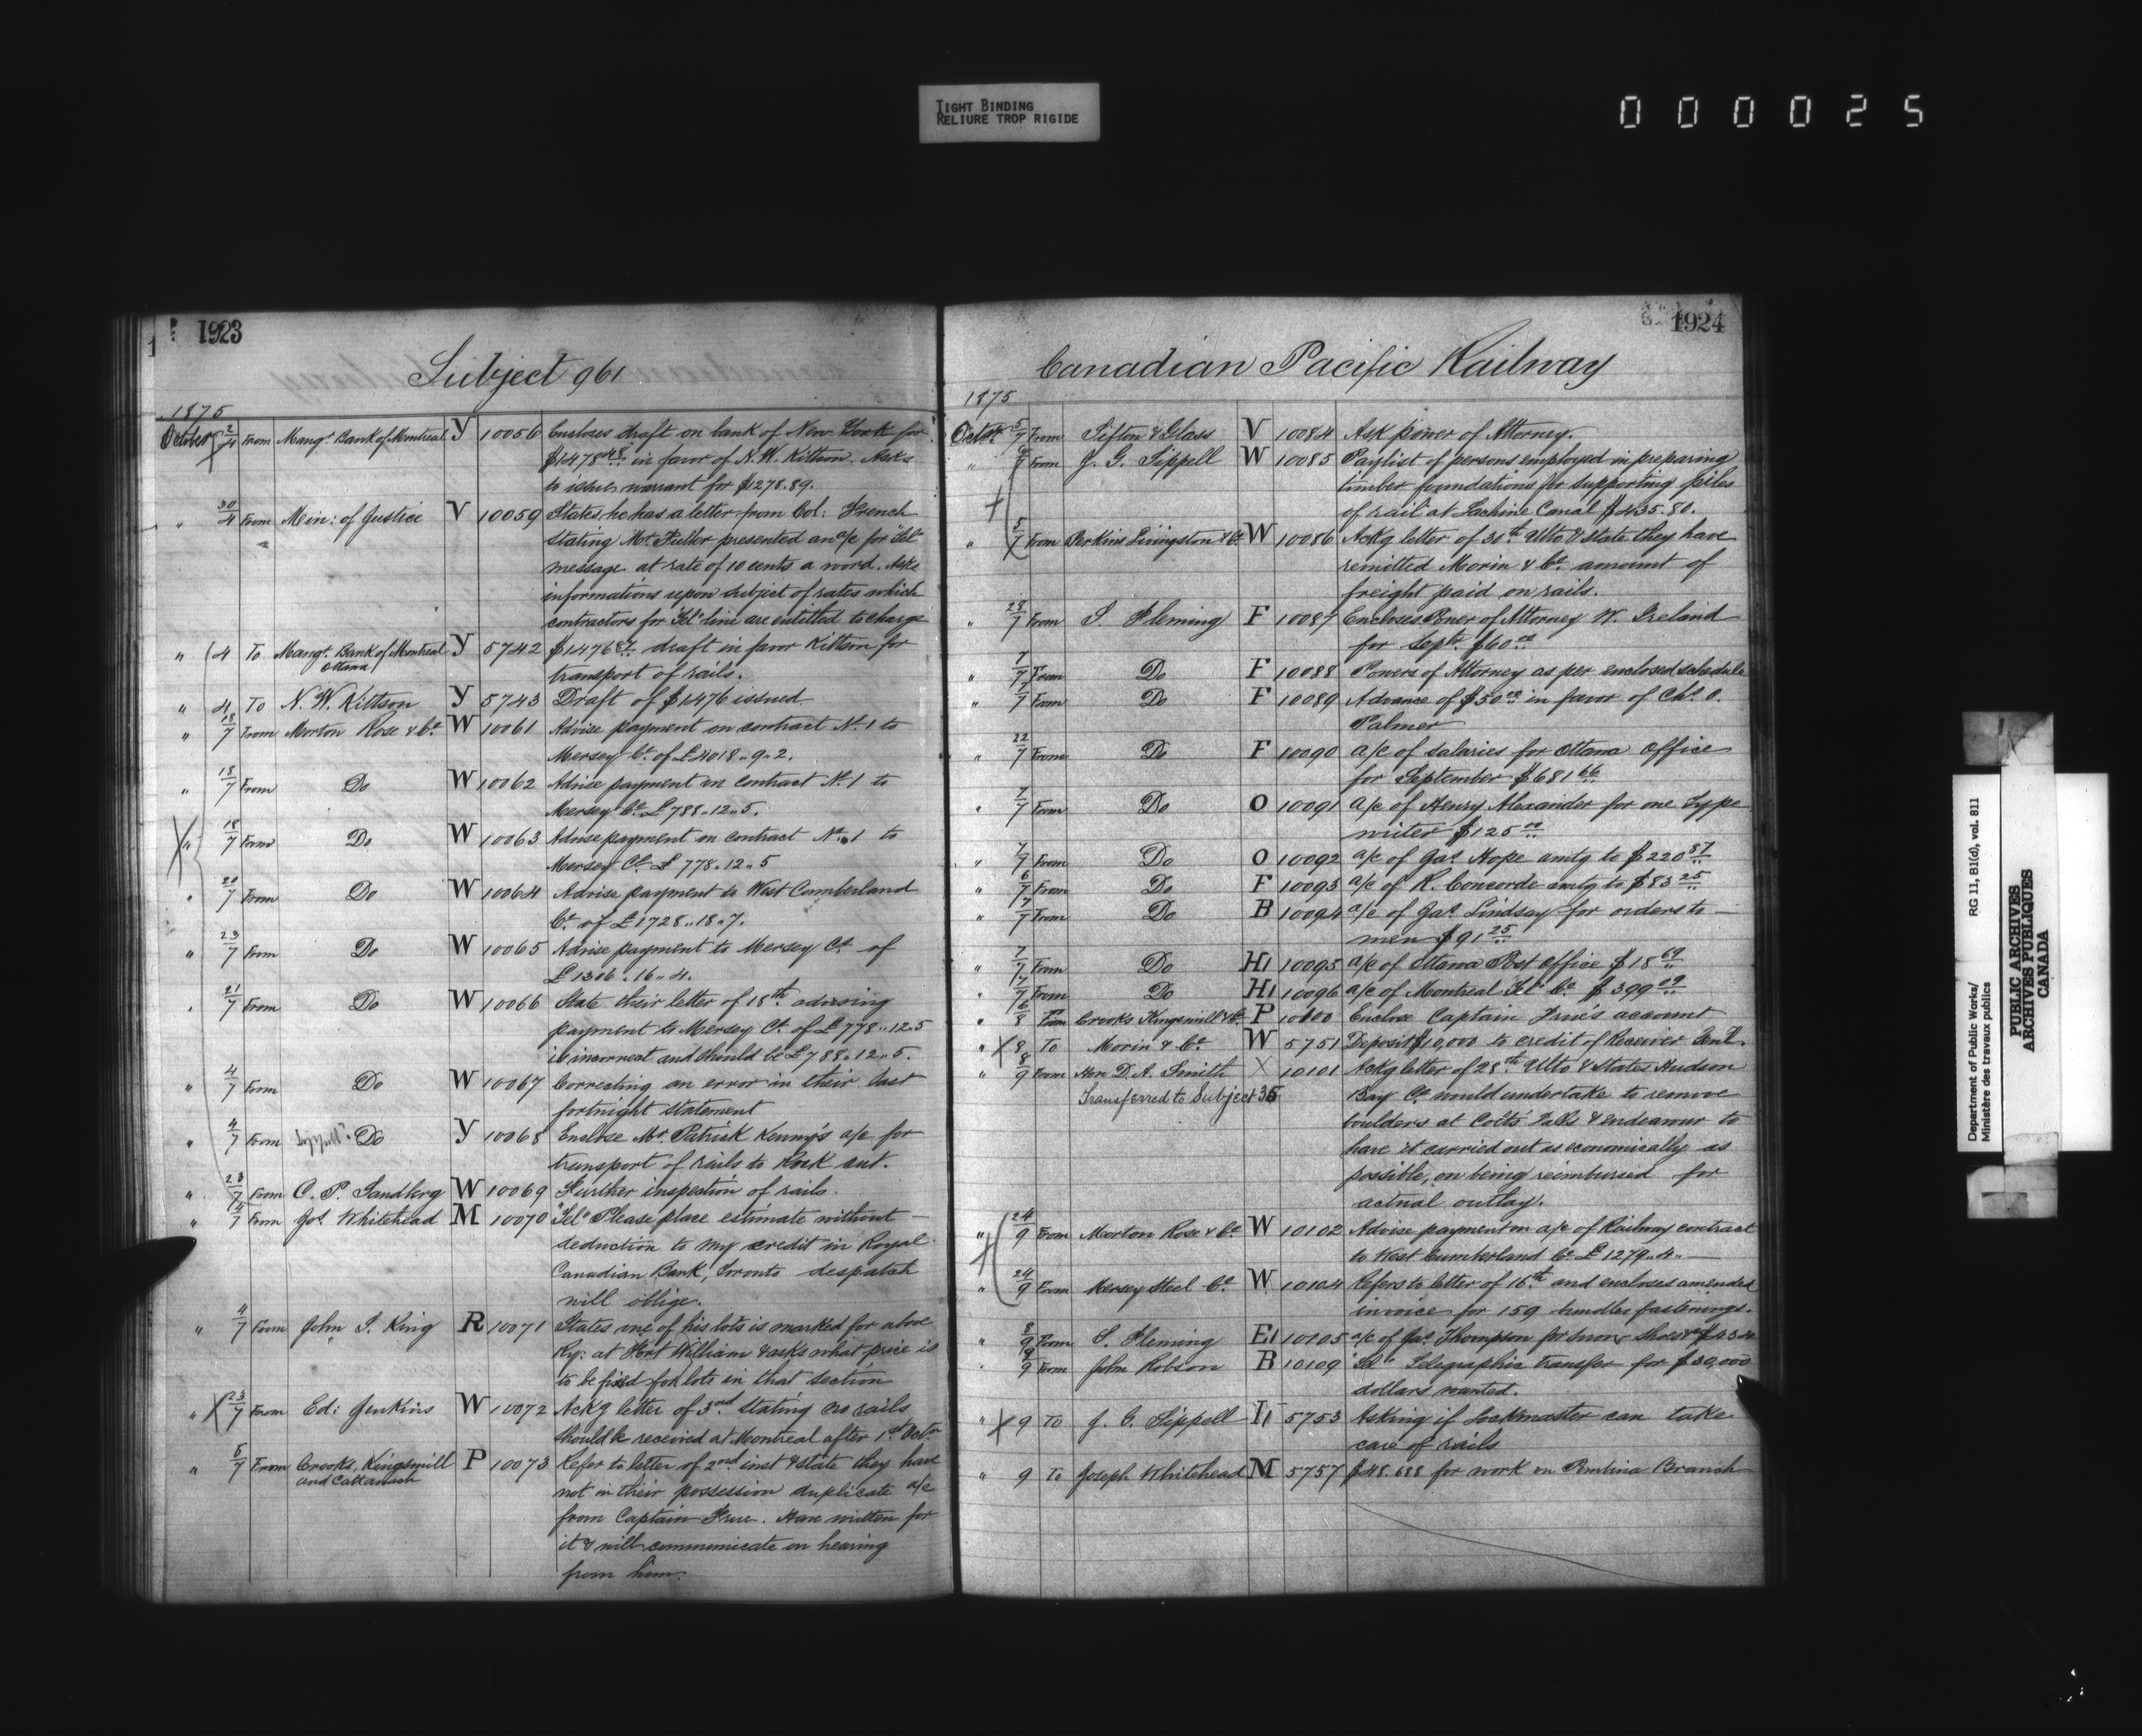 TIGHT BINDING
RELIURE TROP RIGIDE
000025
1923
Subject 961
1875
October 2/4 From Mangr. Bank of Montreal Y 10056 Encloses draft on bank of New York for
$1478.48 in favor of N. W. Kittson. Asks
to issue warrant for $1278.89.
" 30/4 From Min: of Justice V 10059 States he has a letter from Col: French
stating Mr. Fuller presented an a/c for "Tel"
message at rate of 10 cents a word. Asks
informations upon subject of rates which
contractors for "Tel" line are entitled to charge
" 4 To Mangr. Bank of Montreal Y 5742 $1476 draft in favor Kittson for
Ottawa transport of rails.
" 4 To N. W. Kittson Y 5743 Draft of $1476 issued
" 18/7 From Morton Rose & Co. W 10061 Advise payment on contract No. 1 to
Mersey Co. of £4018..9..2.
" 18/7 From Do W 10062 Advise payment on contract No. 1 to
Mersey Co. £788..12..5.
" 18/7 From Do W 10063 Advise payment on contract No. 1 to
Mersey Co. £778..12..5
" 20/7 From Do W 10064 Advise payment to West Cumberland
Co. of £1728..18..7.
" 23/7 From Do W 10065 Advise payment to Mersey Co. of
£1306..16..4.
" 21/7 From Do W 10066 State their letter of 18th advising
payment to Mersey Co. of £778..12..5
is incorrect and should be £788..12..5.
" 4/7 From Do W 10067 Correcting an error in their last
fortnight statement
" 4/7 From Do Y 10068 Enclose Mr. Patrick Kenny's a/c for
transport of rails to Rock cut.
" 28/7 From C. P. Sandberg W 10069 Further inspection of rails.
" 4/7 From Jos. Whitehead M 10070 "Tel" Please place estimate without
deduction to my credit in Royal
Canadian Bank, Toronto despatch
will oblige.
" 4/7 From John S. King R 10071 States one of his lots is marked for above
Ry: at Fort William & asks what price is
to be fixed for lots in that section
" 23/7 From Ed: Jenkins W 10072 Ackg letter of 3rd stating no rails
should be received at Montreal after 1st Octr.
" 5/7 From Crooks, Kingsmill P 10073 Refer to letter of 2nd inst & state they have
and Cattanach not in their possession duplicate a/c
from Captain . Have written for
it & will communicate on hearing
from him.
1924
Canadian Pacific Railway
1875
Octor. 5/7 From Sifton & Glass V 10084 Ask power of Attorney.
" /7 From J. G. Sippell W 10085 Paylist of persons employed in preparing
timber foundations for supporting piles
of rail at Lachine Canal $435.80.
" 5/7 From Perkins Livingston & Co. W 10086 Ackg letter of 30th Ulto & state they have
remitted Morin & Co. amount of
freight paid on rails.
" 28/7 From S. Fleming F 10087 Encloses Power of Attorney W. Ireland
for Septr. $60.00
" 7/7 From Do F 10088 Powers of Attorney as per enclosed schedule
" 7/7 From Do F 10089 Advance of $50.00 in favor of Chs. O.
Palmer
" 22/7 From Do F 10090 a/c of salaries for Ottawa Office
for September $681.66
" 7/7 From Do O 10091 a/c of Henry Alexander for one Type
writer $125.00
" 7/7 From Do O 10092 a/c of Jas. Hope amtg to $220.87
" 6/7 From Do F 10093 a/c of R. Concorde amtg to $83.25
" 7/7 From Do B 10094 a/c of Jas. Lindsay for orders to
men $91.25
" 7/7 From Do H1 10095 a/c of Ottawa Post Office $18.69
" 7/7 From Do H1 10096 a/c of Montreal "Tel" Co. $399.09
" 6/8 From Crooks Kingsmill & Co. P 10100 Enclose Captain account
" 8 To Morin & Co. W 5751 Deposit $10,000 to credit of Receiver Genl.
" 8/9 From Hon D. A. Smith X 10101 Ackg letter of 28th Ulto & states Hudson
Transferred to Subject 36 Bay Co. would undertake to remove
boulders at Colts Falls & endeavour to
have it carried out as economically as
possible, on being reimbursed for
actual outlay.
" 24/9 From Morton Rose & Co. W 10102 Advise payment on a/c of Railway contract
to West Cumberland Co. £1279..4..
" 24/9 From Mersey Steel Co. W 10104 Refers to letter of 16th and encloses amended
invoice for 159 bundles fastenings.
" 8/9 From S. Fleming E1 10105 a/c of Jas. Thompson for snow shoes &c
" 9/9 From John Robson B 10109 "Tel" Telegraphic transfer for $30,000
dollars wanted.
" 9 To J. G. Sippell 5753 Asking if Lockmaster can take
care of rails
" 9 To Joseph Whitehead M 5757 $48.688 for work on Pembina Branch
Department of Public Works/ RG 11, B1(d), vol. 811
Ministère des travaux publics
PUBLIC ARCHIVES
ARCHIVES PUBLIQUES
CANADA